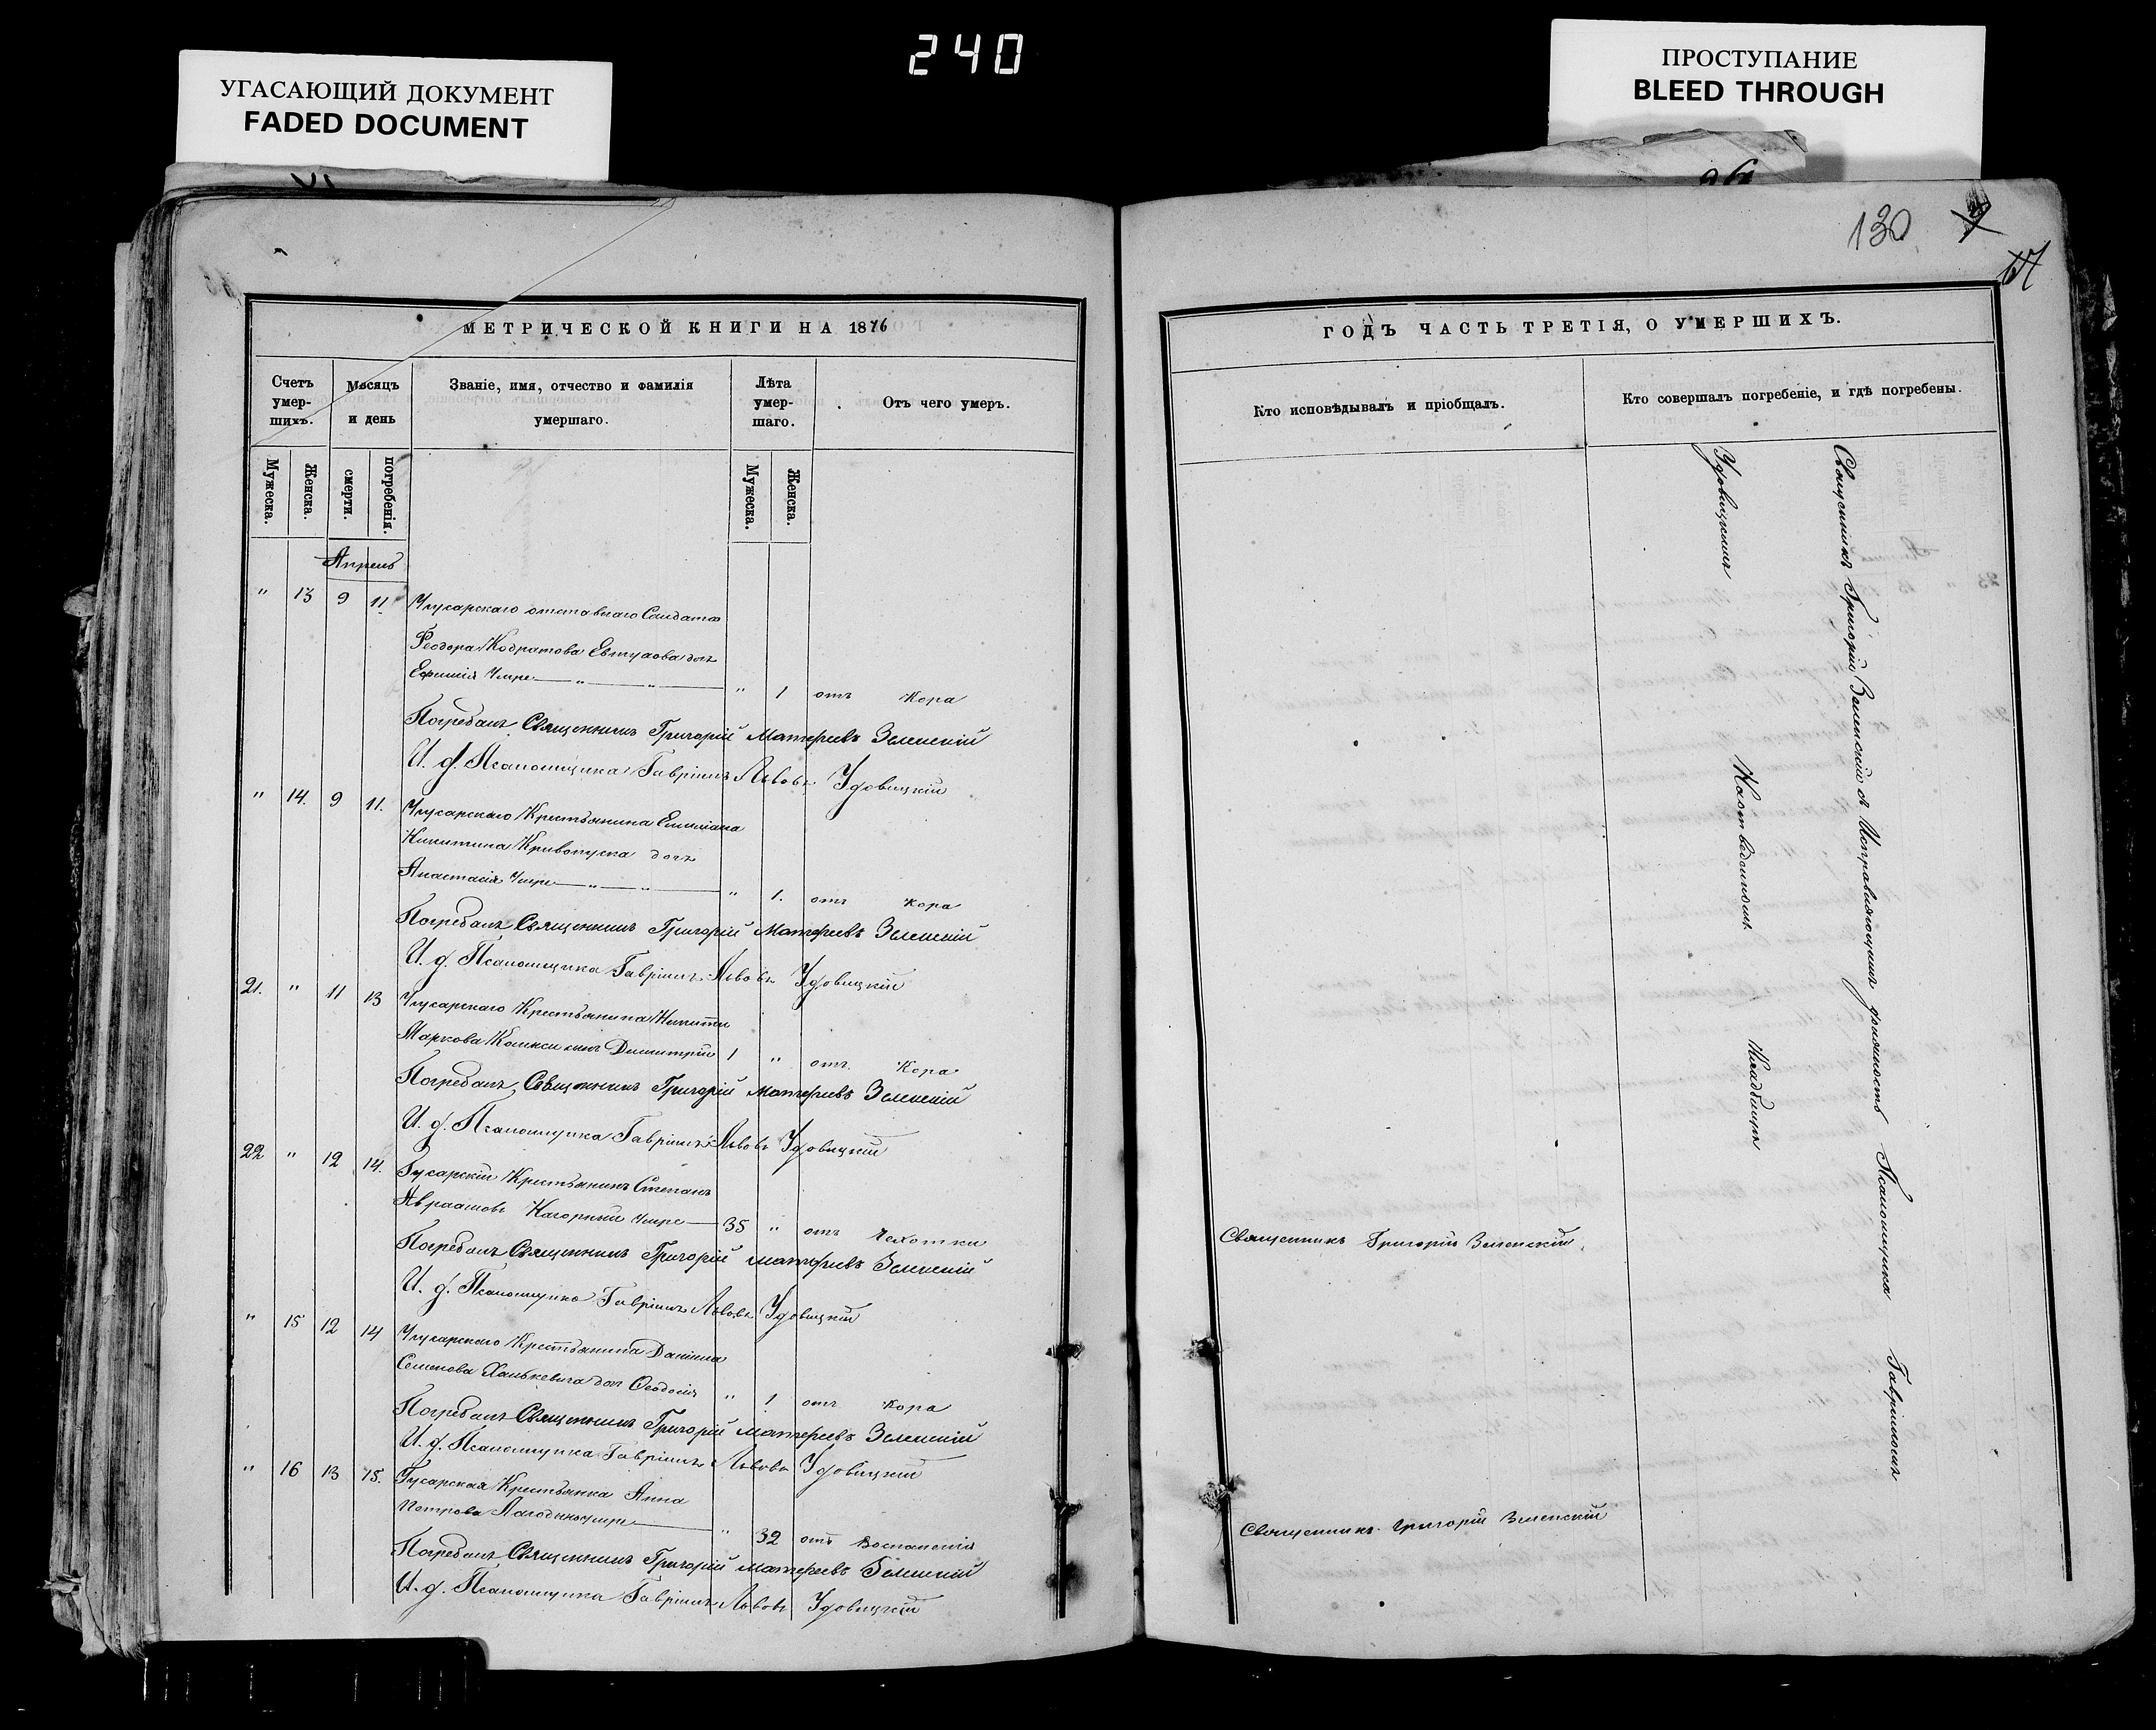 240
УГАСАЮЩИЙ ДОКУМЕНТ
FADED DOCUMENT
ПРОСТУПАНИЕ
BLEED THROUGH
130
МЕТРИЧЕСКОЙ КНИГИ НА 1876
Счетъ умер-шихъ.
Мѣсяцъ и день
Званіе, имя, отчество и фамилія умершаго.
Лѣта умер-шаго.
Отъ чего умеръ.
Мужеска.
Женска.
смерти.
погребенія.
Мужеска.
Женска.
Апрель
" 13 9 11 отставнаго Солдата
Феодора дочь
" 1 отъ Кора
Погребалъ Священникъ Григорій Матфеевъ Зеленскій
И. д. Псаломщика Гавріилъ Львовъ Удовицкій
" 14. 9 11. Крестьянина Емиліана
Никитина Кривопуска дочь
Анастасія Умре " 1. отъ Кора
Погребалъ Священникъ Григорій Матфеевъ Зеленскій
И. д. Псаломщика Гавріилъ Львовъ Удовицкій
21. " 11 13 Крестьянина Никиты
Маркова сынъ Димитрій 1 " отъ Кора
Погребалъ Священникъ Григорій Матфеевъ Зеленскій
И. д. Псаломщика Гавріилъ Львовъ Удовицкій
22 " 12 14. Гусарскій Крестьянинъ Степанъ
Авраамовъ Нагорный Умре 35 " отъ Чахотки
Погребалъ Священникъ Григорій Матфеевъ Зеленскій
И. д. Псаломщика Гавріилъ Львовъ Удовицкій
" 15 12 14 Крестьянина Даніила
Семенова Ханькевича доч Феодосія " 1 отъ Кора
Погребалъ Священникъ Григорій Матфеевъ Зеленскій
И. д. Псаломщика Гавріилъ Львовъ Удовицкій
" 16 13 15. Гусарская Крестьянка Анна
Петрова умре " 32 отъ Воспаленія
Погребалъ Священникъ Григорій Матфеевъ Зеленскій
И. д. Псаломщика Гавріилъ Львовъ Удовицкій
ГОДЪ ЧАСТЬ ТРЕТІЯ, О УМЕРШИХЪ.
Кто исповѣдывалъ и пріобщалъ.
Кто совершалъ погребеніе, и гдѣ погребены.
Священникъ Григорій Зеленскій
Священникъ Григорій Зеленскій
Священникъ Григорій Зеленскій съ Исправляющимъ должность Псаломщика Гавріиломъ
Удовицкимъ На отведенномъ Кладбищѣ